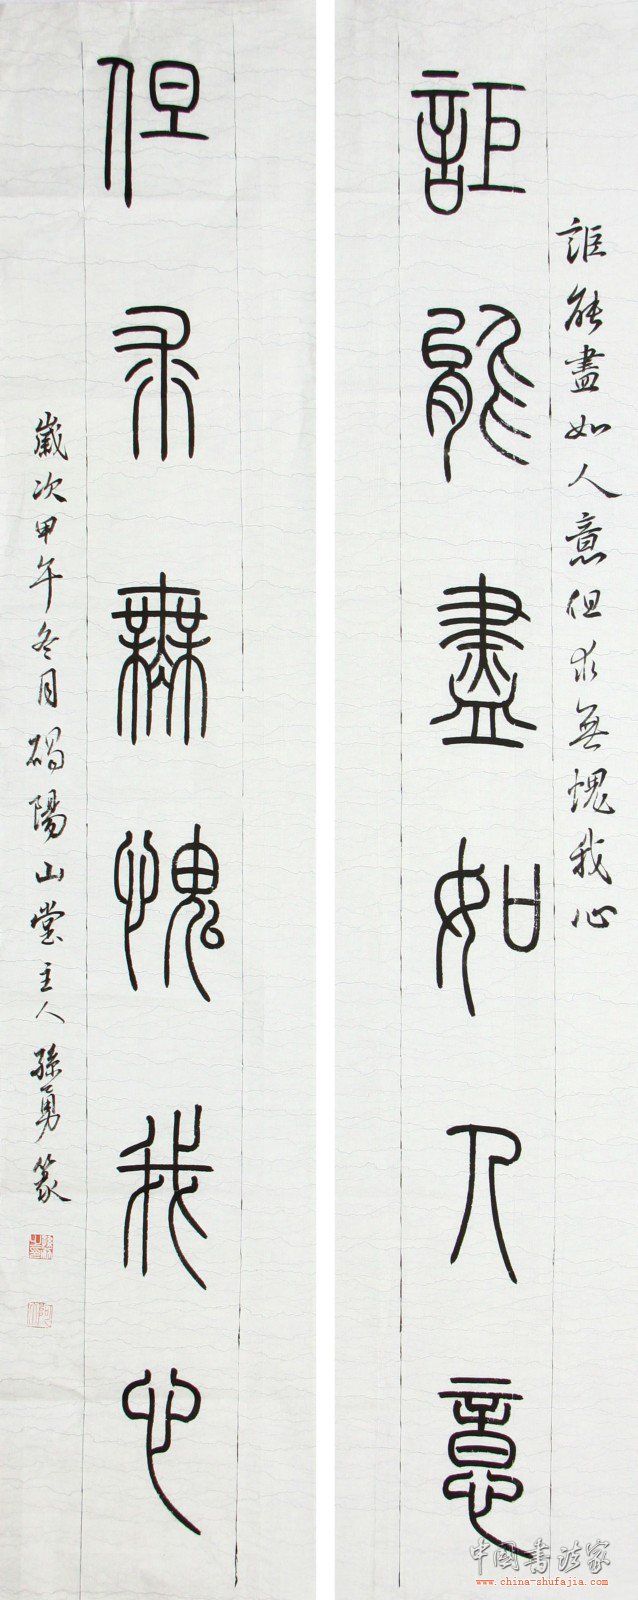 詎能盡如人意但求無愧我心
詎能盡如人意
但求無愧我心
歲次甲午冬月碣陽山堂主人孫勇篆
中国书法家
www.china-shufajia.com